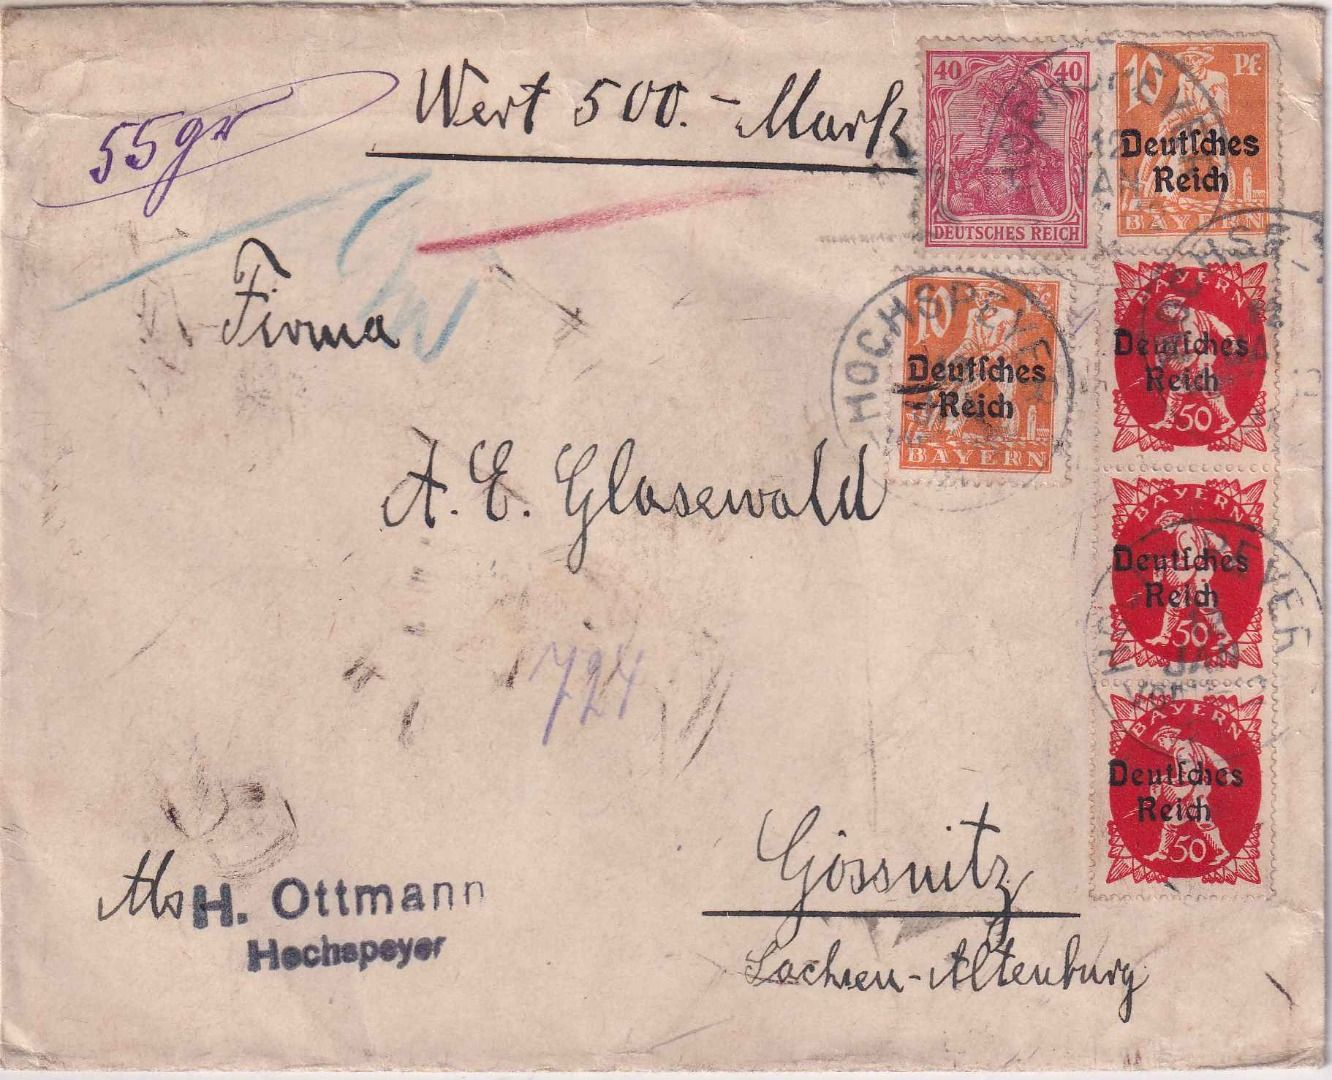 55gr
Wert 500.- Mark
40 40
DEUTSCHES REICH
10 Pf.
Deutsches
Reich
BAYERN
HOCHSPEYER
12
JAN
Firma
10
Deutsches
Reich
BAYERN
HOCHSPEYER
BAYERN
Deutsches
Reich
50
A. E. Glasewald
BAYERN
Deutsches
Reich
50
HOCHSPEYER
12
JAN
724
BAYERN
Deutsches
Reich
50
Gössnitz
Sachsen-Altenburg
Abs H. Ottmann
Hochspeyer